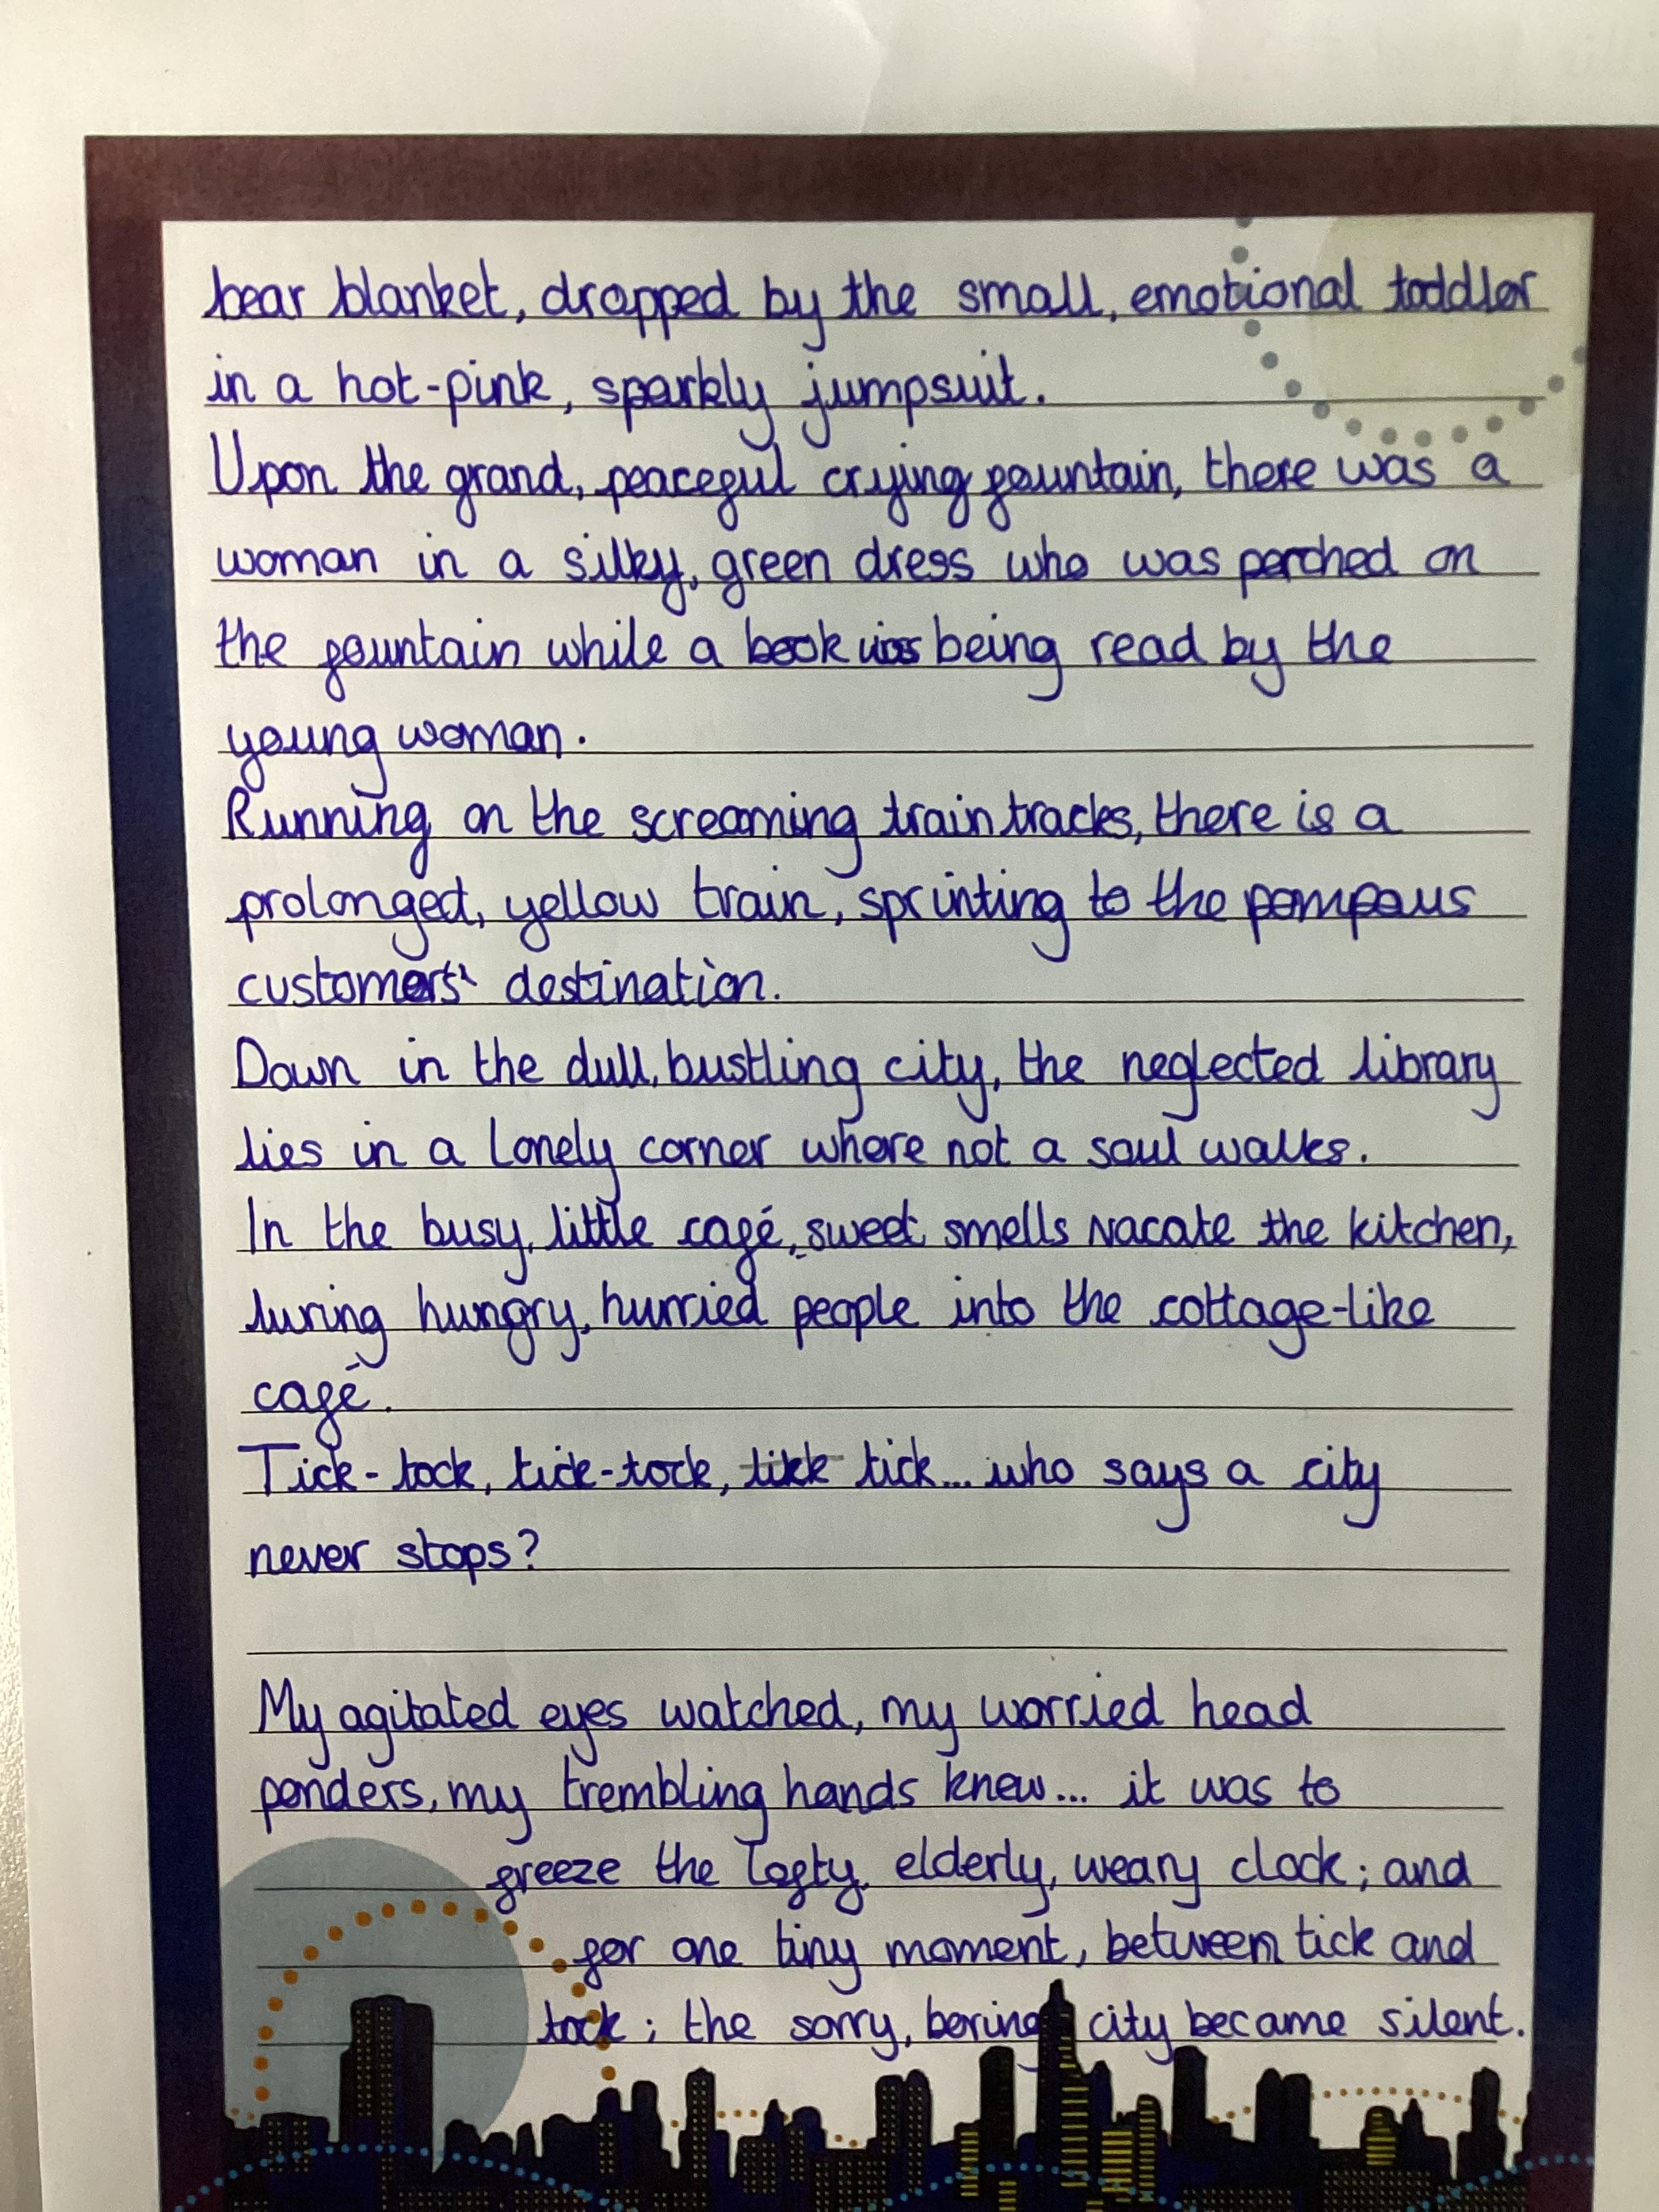 bear blanket, dropped by the small, emotional toddler
in a hot-pink, sparkly jumpsuit.
Upon the grand, peaceful crying fountain, there was a
woman in a silky, green dress who was perched on
the fountain while a book was being read by the
young woman.
Running on the screaming train tracks, there is a
prolonged, yellow train, sprinting to the pompous
customers' destination.
Down in the dull, bustling city, the neglected library
lies in a lonely corner where not a soul walks.
In the busy, little café, sweet smells vacate the kitchen,
luring hungry, hurried people into the cottage-like
café.
Tick-tock, tick-tock, tick... who says a city
never stops?
My agitated eyes watched, my worried head
ponders, my trembling hands knew... it was to
freeze the lofty, elderly, weary clock; and
for one tiny moment, between tick and
tock; the sorry, boring city became silent.